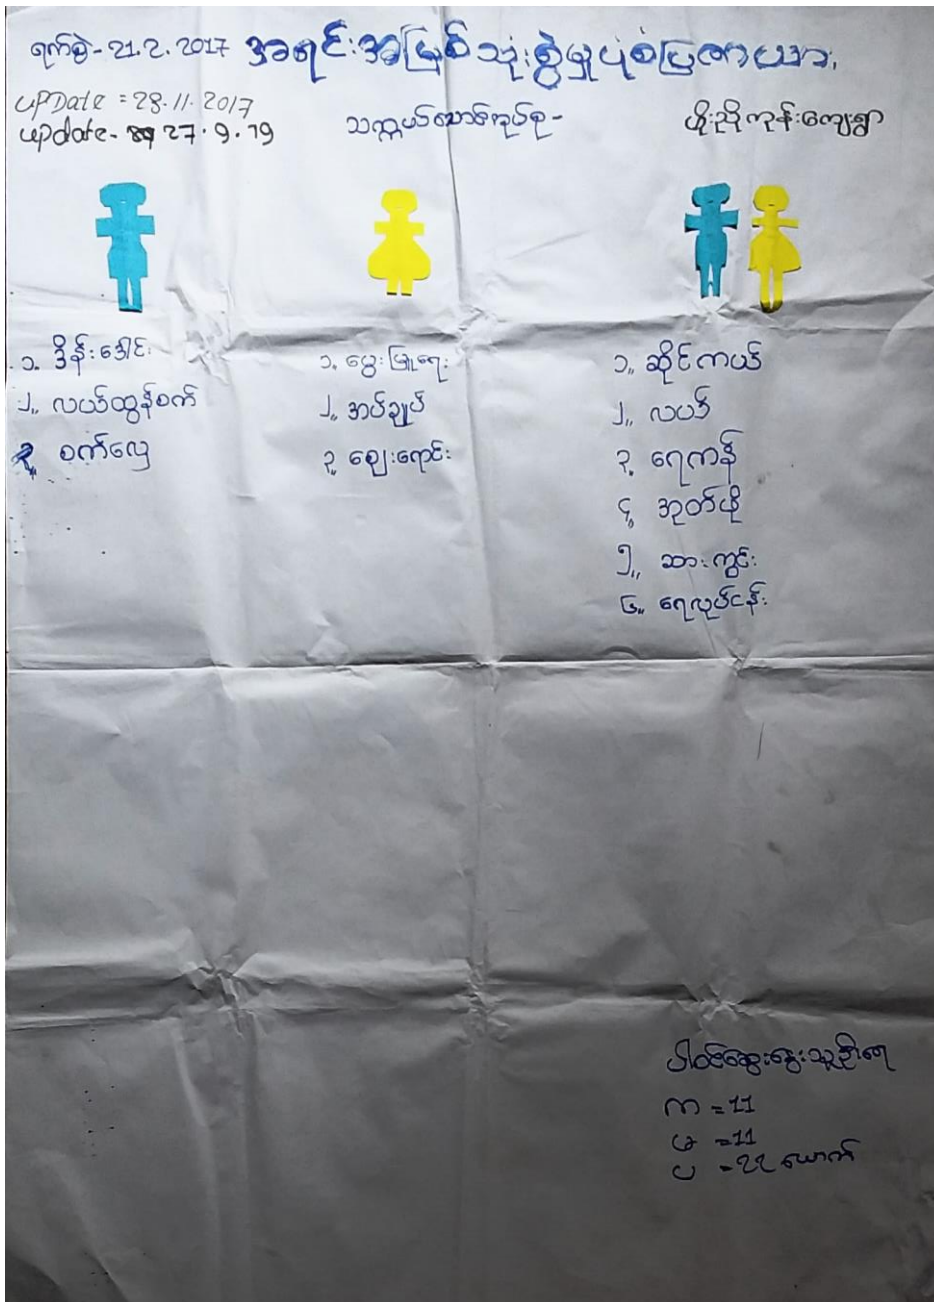 ရက်စွဲ-21.2.2017 အရင်းအမြစ်သုံးစွဲမှုပုံစံပြဇယား
upDate = 28.11.2017
update- 27.9.19
သက္ကယ်သောင်အုပ်စု- ဖိုးညိုကုန်းကျေးရွာ
၁. ဒိန်းဒေါင်း
၂။ လယ်ထွန်စက်
၃. စက်လှေ
၁. မွေးမြူရေး
၂။ အပ်ချုပ်
၃. ဈေးရောင်း
၁။ ဆိုင်ကယ်
၂။ လယ်
၃. ရေကန်
၄. အုတ်ဖို
၅။ ဆားကွင်း
၆။ ရေလုပ်ငန်း
ပါဝင်ဆွေးနွေးသူဦးရေ
ကာ = 11
မ = 11
ပ = 22 ယောက်